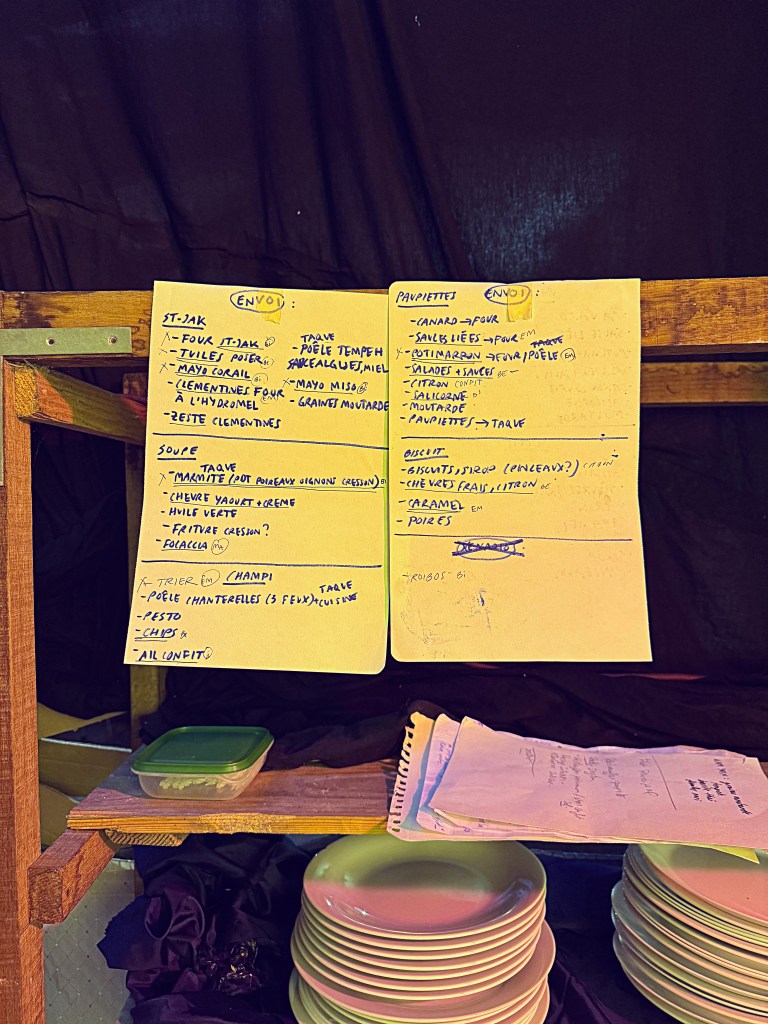 ENVOI :
ST-JAK
x - FOUR ST-JAK
x - TUILES POSER
x - MAYO CORAIL
- CLEMENTINES FOUR
À L'HYDROMEL
- ZESTE CLEMENTINES
TAQUE
- POÊLE TEMPEH
SAUCE ALGUES, MIEL
x - MAYO MISO
- GRAINES MOUTARDE
SOUPE
TAQUE
x - MARMITE (POT POIREAUX OIGNONS CRESSON)
- CHEVRE YAOURT + CREME
- HUILE VERTE
- FRITURE CRESSON ?
- FOCACCIA MA
x TRIER EM CHAMPI
- POÊLE CHANTERELLES (3 FEUX) + CUISINE TAQUE
- PESTO
- CHIPS
- AIL CONFIT
PAUPIETTES ENVOI :
- CANARD → FOUR
- SAUCES LIÉES → FOUR EM
TAQUE
x - POTIMARRON → FOUR / POÊLE EM
- SALADES + SAUCES DE -
- CITRON CONFIT
- SALICORNE
- MOUTARDE
- PAUPIETTES → TAQUE
BISCUIT
- BISCUITS, SIROP (PINCEAUX ?)
- CHÈVRES FRAIS, CITRON DE
- CARAMEL EM
- POIRES
- ROIBOS - Bi